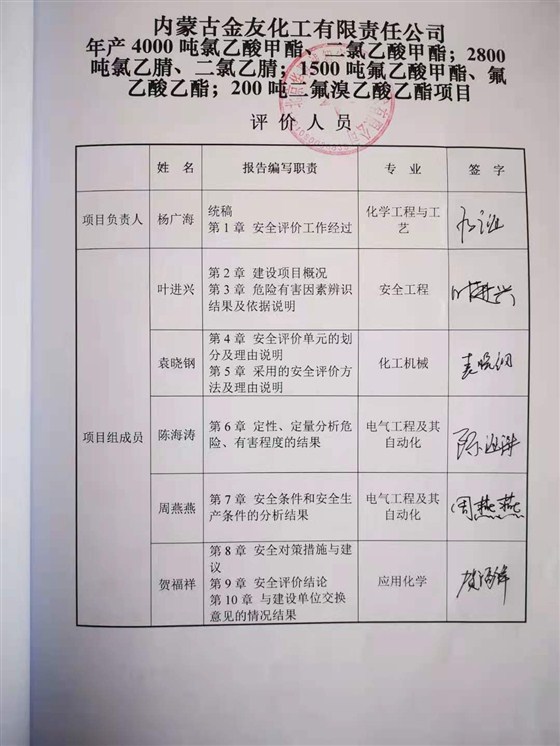 内蒙古金友化工有限责任公司
年产 4000 吨氯乙酸甲酯、二氯乙酸甲酯；2800
吨氯乙腈、二氯乙腈；1500 吨氟乙酸甲酯、氟
乙酸乙酯；200 吨二氟溴乙酸乙酯项目
评价人员
姓 名 报告编写职责 专 业 签 字
项目负责人 杨广海 统稿
第 1 章 安全评价工作经过 化学工程与工
艺
项目组成员
叶进兴 第 2 章 建设项目概况
第 3 章 危险有害因素辨识
结果及依据说明 安全工程 叶进兴
袁晓钢 第 4 章 安全评价单元的划
分及理由说明
第 5 章 采用的安全评价方
法及理由说明 化工机械 袁晓钢
陈海涛 第 6 章 定性、定量分析危
险、有害程度的结果 电气工程及其
自动化
周燕燕 第 7 章 安全条件和安全生
产条件的分析结果 电气工程及其
自动化 周燕燕
贺福祥 第 8 章 安全对策措施与建
议
第 9 章 安全评价结论
第 10 章 与建设单位交换
意见的情况结果 应用化学